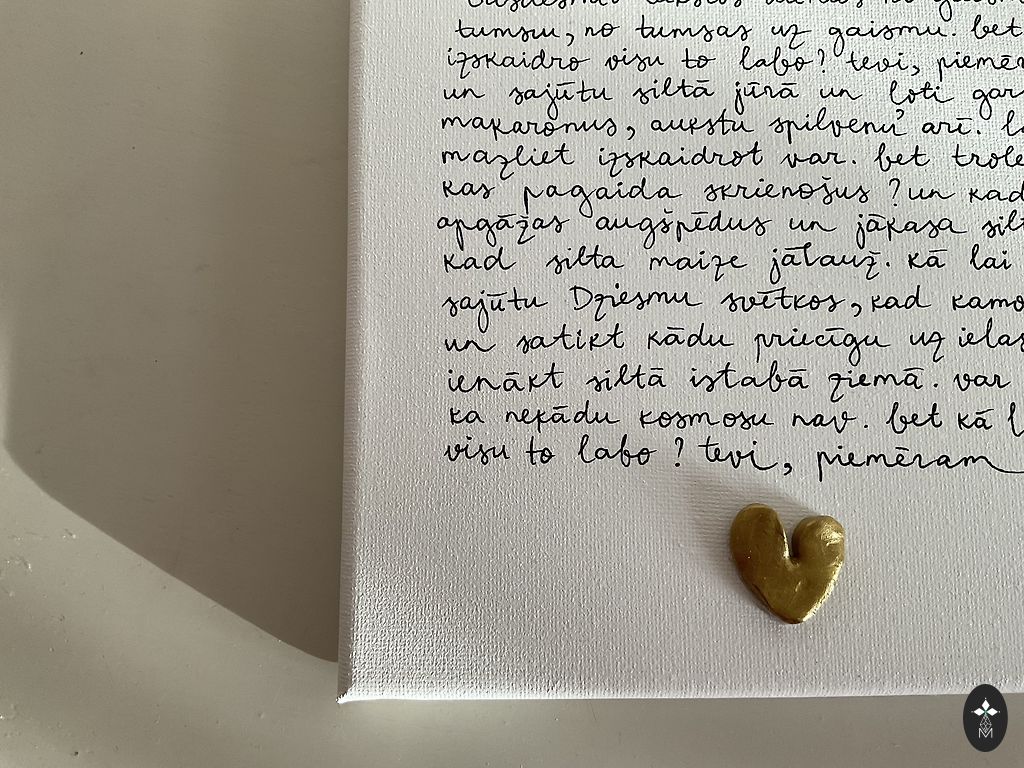 tumsu, no tumsas uz gaismu. bet
izskaidro visu to labo? tevi, piemēr
un sajūtu siltā jūrā un ļoti gar
makaronus, aukstu spilvenu arī.
mazliet izskaidrot var. bet trole
kas pagaida skrienošus? un kad
apgāžas augšpēdus un jākasa sil
kad silta maize jālauž. kā lai
sajūtu Dziesmu svētkos, kad kamo
un satikt kādu priecīgu uz ielas
ienākt siltā istabā ziemā. var
ka nekādu kosmosu nav. bet kā l
visu to labo? tevi, piemēram